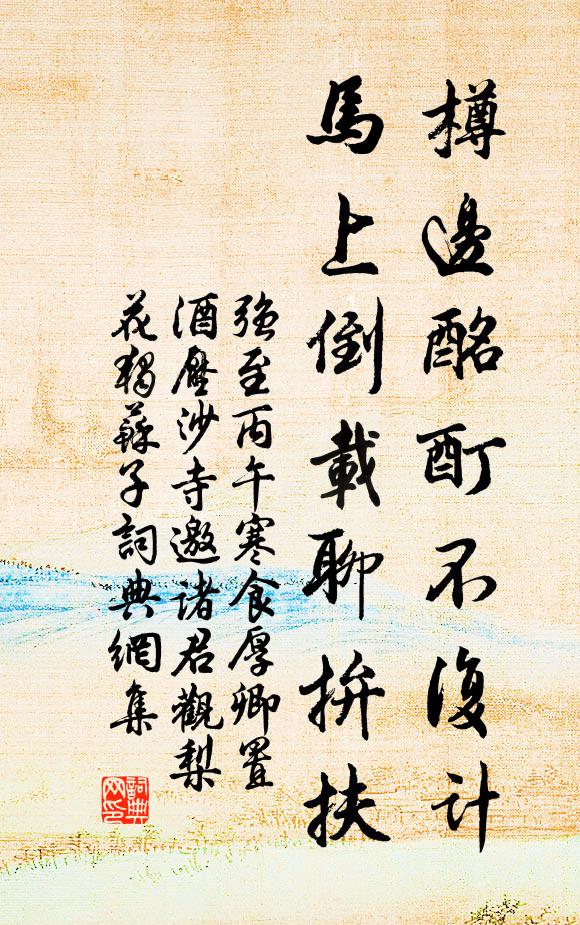 樽邊酩酊不復計
馬上倒載聊拚扶
強至丙午寒食厚卿置
酒壓沙寺邀诸君觀梨
花獨蘇子詞典網集
詞典
网印